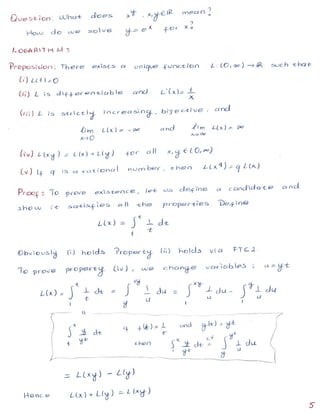 Question: What does x^y, x,y ∈ ℝ mean?
How do we solve y = e^x for x?
LOGARITHMS
Proposition: There exists a unique function L: (0,∞) → ℝ such that
(i) L(1)=0
(ii) L is differentiable and L'(x) = 1/x
(iii) L is strictly increasing, bijective, and
lim x→0 L(x) = -∞ and lim x→∞ L(x) = ∞
(iv) L(xy) = L(x) + L(y) for all x,y ∈ (0,∞)
(v) If q is a rational number, then L(x^q) = q L(x)
Proof: To prove existence, let us define a candidate and
show it satisfies all the properties. Define
L(x) = ∫_1^x 1/t dt
Obviously (i) holds. Property (ii) holds via FTC2
To prove property (iv), we change variables: u=yt
L(x) = ∫_1^x 1/t dt = ∫_y^xy 1/u du = ∫_1^xy 1/u du - ∫_1^y 1/u du
∫_1^x y/yt dt
if f(t) = 1/t and g(t) = yt
then ∫_1^x y/yt dt = ∫_y^yx 1/u du
= L(xy) - L(y)
Hence L(x) + L(y) = L(xy)
5